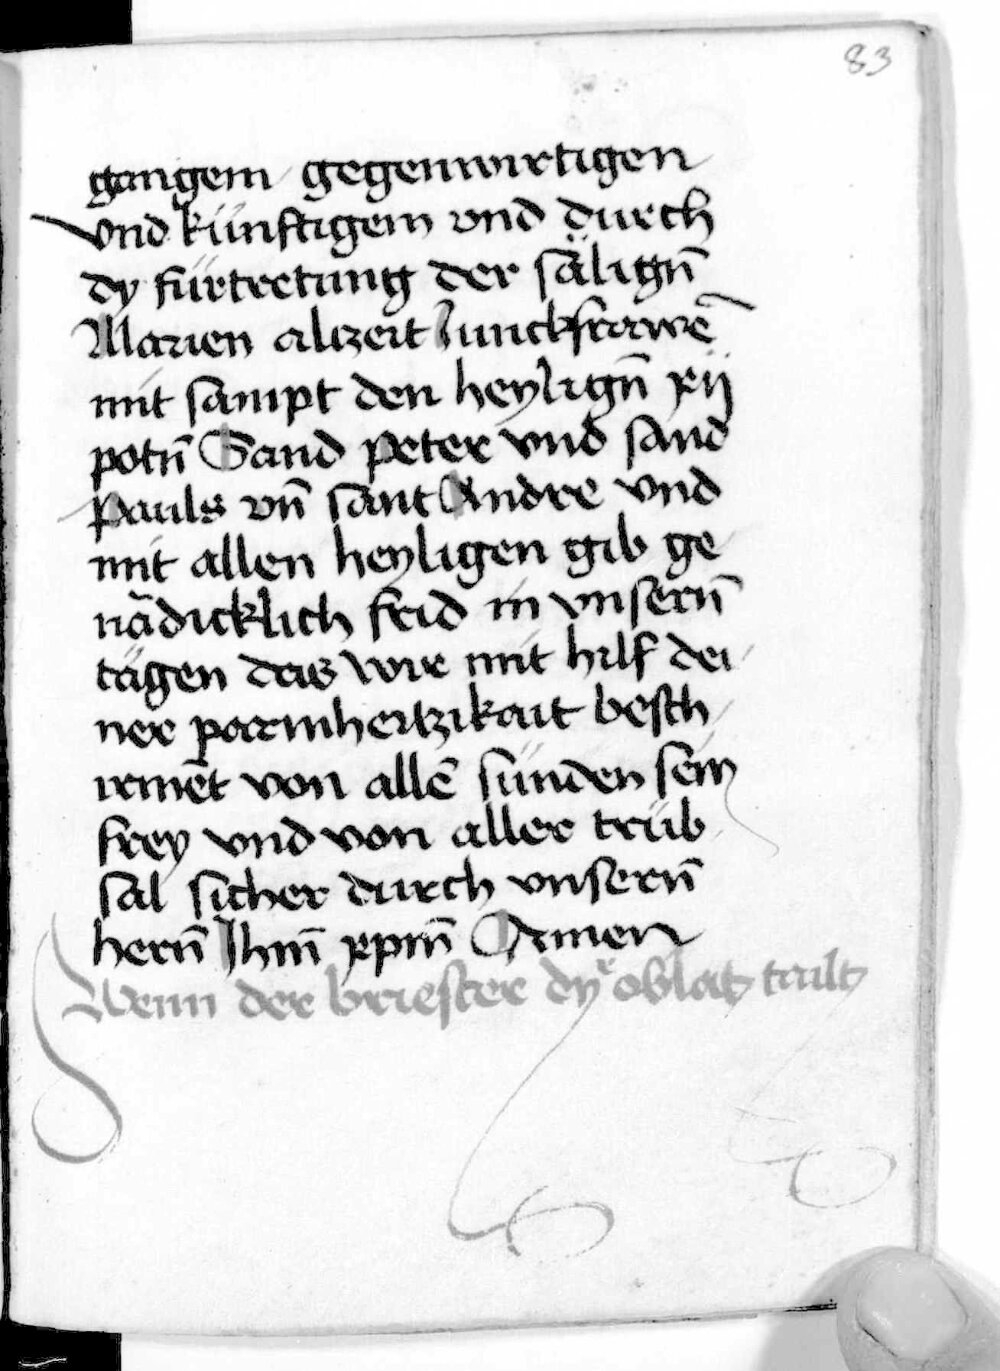 83
gangem gegenwirtigen
vnd künftigem vnd durch
dy fürtretung der sälign̄
Marien alizeit Junckfrawē
mit sampt den heylign̄ xij
potn̄ Sand Peter vnd sand
Pauls vn̄ sant Andre vnd
mit allen heyligen gib ge
nādicklich frid in vnsern̄
tägen das wir mit hilf dei
ner parmhertzikait besch
irmēt von allē sünden sein
frey vnd von aller trüb
sal sicher durch vnsern̄
hern̄ Jhm̄ xpm̄ Amen
Wenn der briester dy oblat tailt